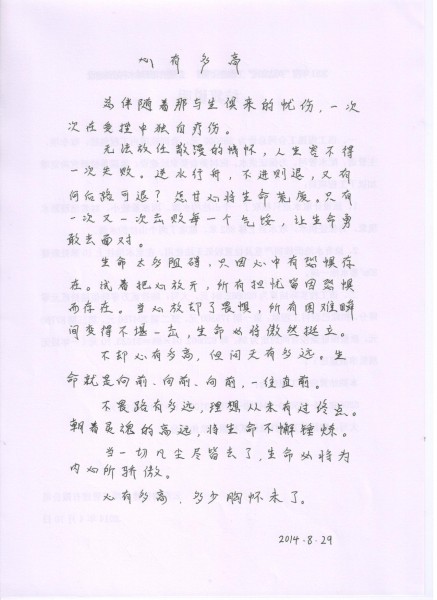 心有多高
总伴随着那与生俱来的忧伤,一次
次在受挫中独自疗伤。
无法放任散漫的情怀,人生容不得
一次失败。逆水行舟,不进则退,又有
何后路可退?怎甘心将生命荒废。只有
一次又一次击败每一个气馁,让生命勇
敢去面对。
生命太多阻碍,只因心中有恐惧存
在。试着把心放开,所有担忧皆因恐惧
而存在。当心放却了畏惧,所有困难瞬
间变得不堪一击,生命必将傲然挺立。
不却心有多高,但问天有多远。生
命就是向前、向前、向前,一往直前。
不畏路有多远,理想从未有过终点。
朝着灵魂的高远,将生命不懈锤炼。
当一切凡尘尽皆去了,生命必将为
内心所骄傲。
心有多高,多少胸怀未了。
2014.8.29